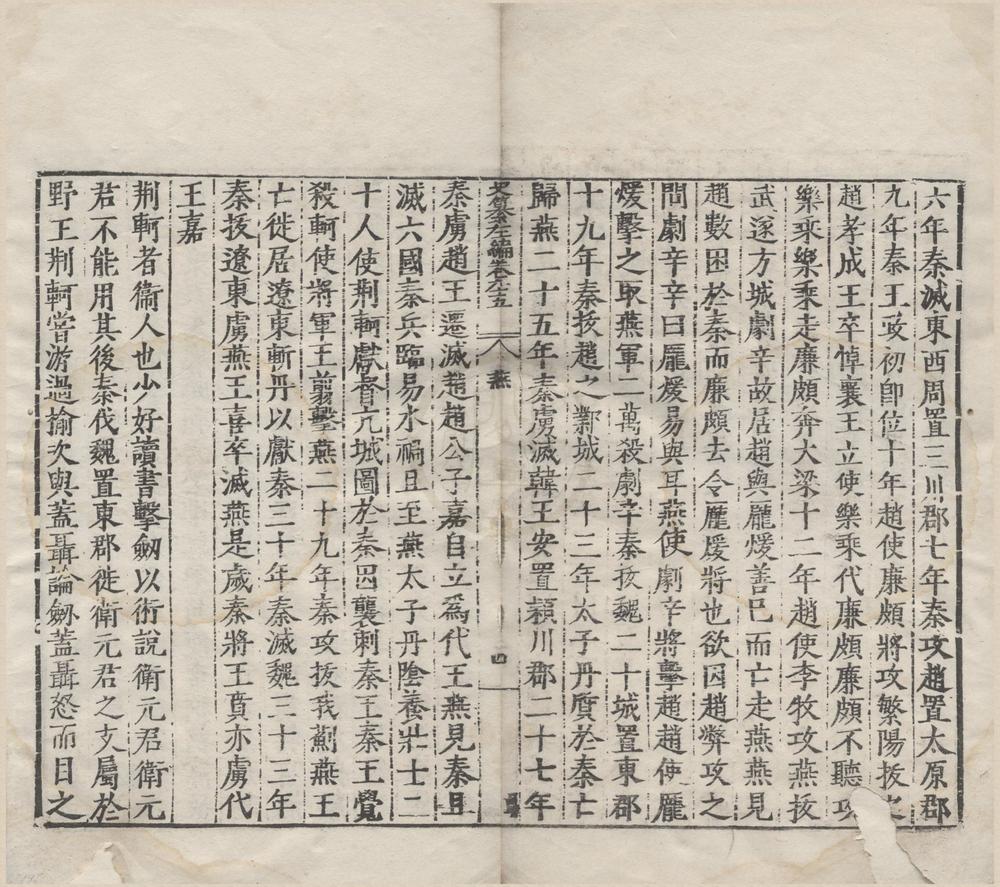 六年秦滅東西周置三川郡七年秦攻趙置太原郡
九年秦王政初卽位十年趙使廉頗將攻繁陽拔之
趙孝成王卒悼襄王立使樂乘代廉頗廉頗不聽攻
樂乘樂乘走廉頗奔大梁十二年趙使李牧攻燕拔
武遂方城劇辛故居趙與龎煖善已而亡走燕燕見
趙數困於秦而廉頗去令龎煖將也欲因趙弊攻之
問劇辛辛曰龎煖易與耳燕使劇辛將擊趙趙使龎
煖擊之取燕軍二萬殺劇辛秦拔魏二十城置東郡
十九年秦拔趙之鄴城二十三年太子丹質於秦亡
歸燕二十五年秦虜滅韓王安置潁川郡二十七年
燕 四
秦虜趙王遷滅趙趙公子嘉自立爲代王燕見秦且
滅六國秦兵臨易水禍且至燕太子丹陰養壯士二
十人使荆軻獻督亢城圖於秦因襲刺秦王秦王覺
殺軻使將軍王翦擊燕二十九年秦攻拔我薊燕王
亡徙居遼東斬丹以獻秦三十年秦滅魏三十三年
秦拔遼東虜燕王喜卒滅燕是歲秦將王賁亦虜代
王嘉
荆軻者衞人也少好讀書擊劒以術說衛元君衛元
君不能用其後秦伐魏置東郡徙衛元君之支屬於
野王荆軻嘗游過榆次與蓋聶論劒蓋聶怒而目之